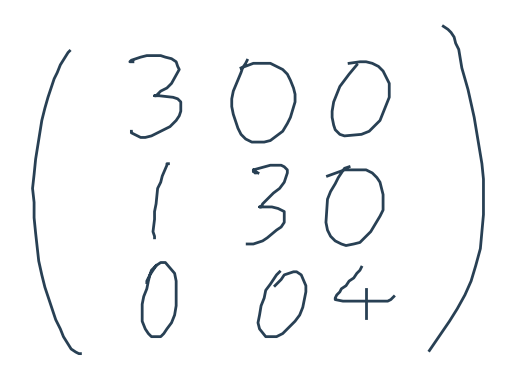 3 0 0
1 3 0
0 0 4